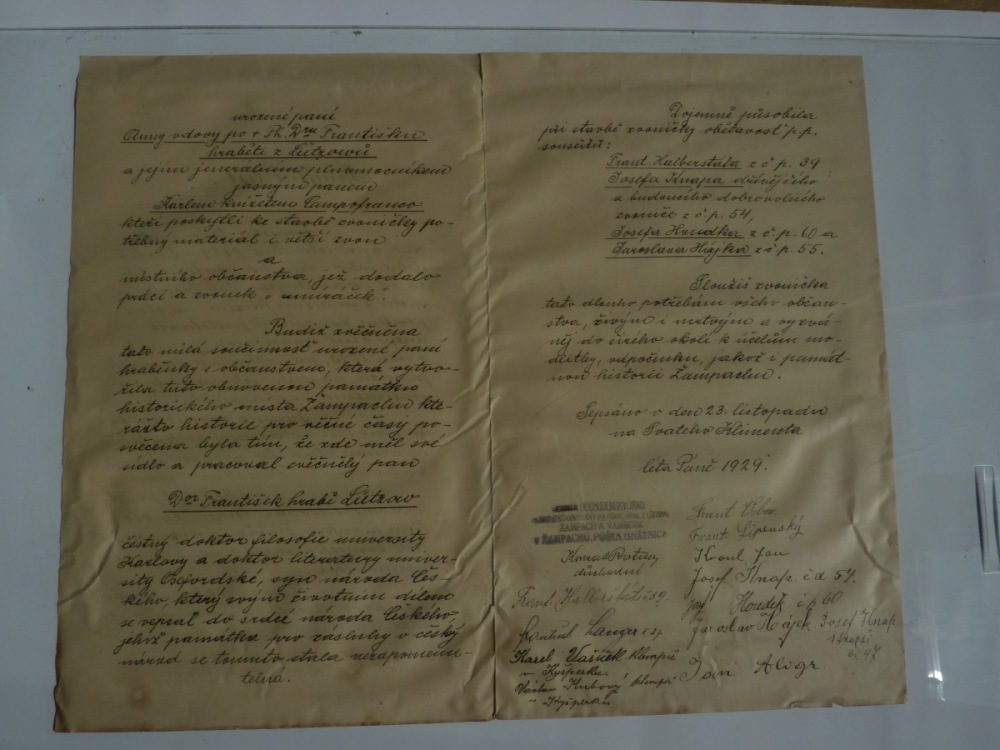 urozené paní
Anny vdovy po + Th. Dru Františku
hraběti z Lützowů
a jejím jenerálním plnomocníkem
jasným panem
Karlem knížetem Campofranco
kteří poskytli ke stavbě zvoničky po-
třebný materiál i větší zvon
a
místního občanstva, jež dodalo
práci a zvonek „umíráček".
Budiž zvěčněna
tato milá součinnost urozené paní
hraběnky s občanstvem, která vytvo-
řila tuto obnovenou památku
historického místa Žampachu kte-
rážto historie pro věčné časy po-
svěcena byla tím, že zde měl své
sídlo a pracoval zvěčnělý pan
Dor František hrabě Lützow
čestný doktor filosofie university
Karlovy a doktor literatury univer-
sity Oxfordské, syn národa Čes-
kého, který svým životním dílem
se vepsal do srdcí národa Českého,
jehož památka pro zásluhy o český
národ se tomuto stala nezapomenu-
telna.
Dojemně působila
při stavbě zvoničky obětavost p.p.
sousedů:
Frant. Halberštata z č p. 39
Josefa Knapa dřívějšího
a budoucího dobrovolného
zvoníč z č p. 54,
Josefa Houdka z č p. 60 a
Jaroslava Hájka z č p. 55.
Sloužiž zvonička
tato dlouho potřebám všeho občan-
stva, živým i mrtvým a vyzvá-
něj do širého okolí k účelům mo-
dlitby, odpočinku, jakož i památ-
nou historii Žampachu.
Sepsáno v den 23. listopadu
na Svatého Klimenta
léta Páně 1929.
ŽAMPACH A VAMBERK
V ŽAMPACHU, POŠTA HNÁTNICE
Konrad
důchodní
Frant.
Langer
Karel Vašíček klempíř
Václav Kubový klempíř
Frant Vrba
Frant. Lipenský
Kroul Jan
Josef Knap. č d 54.
Jos Houdek č p 60
Jaroslav Hájek. Josef Knap
č. 47
Jan